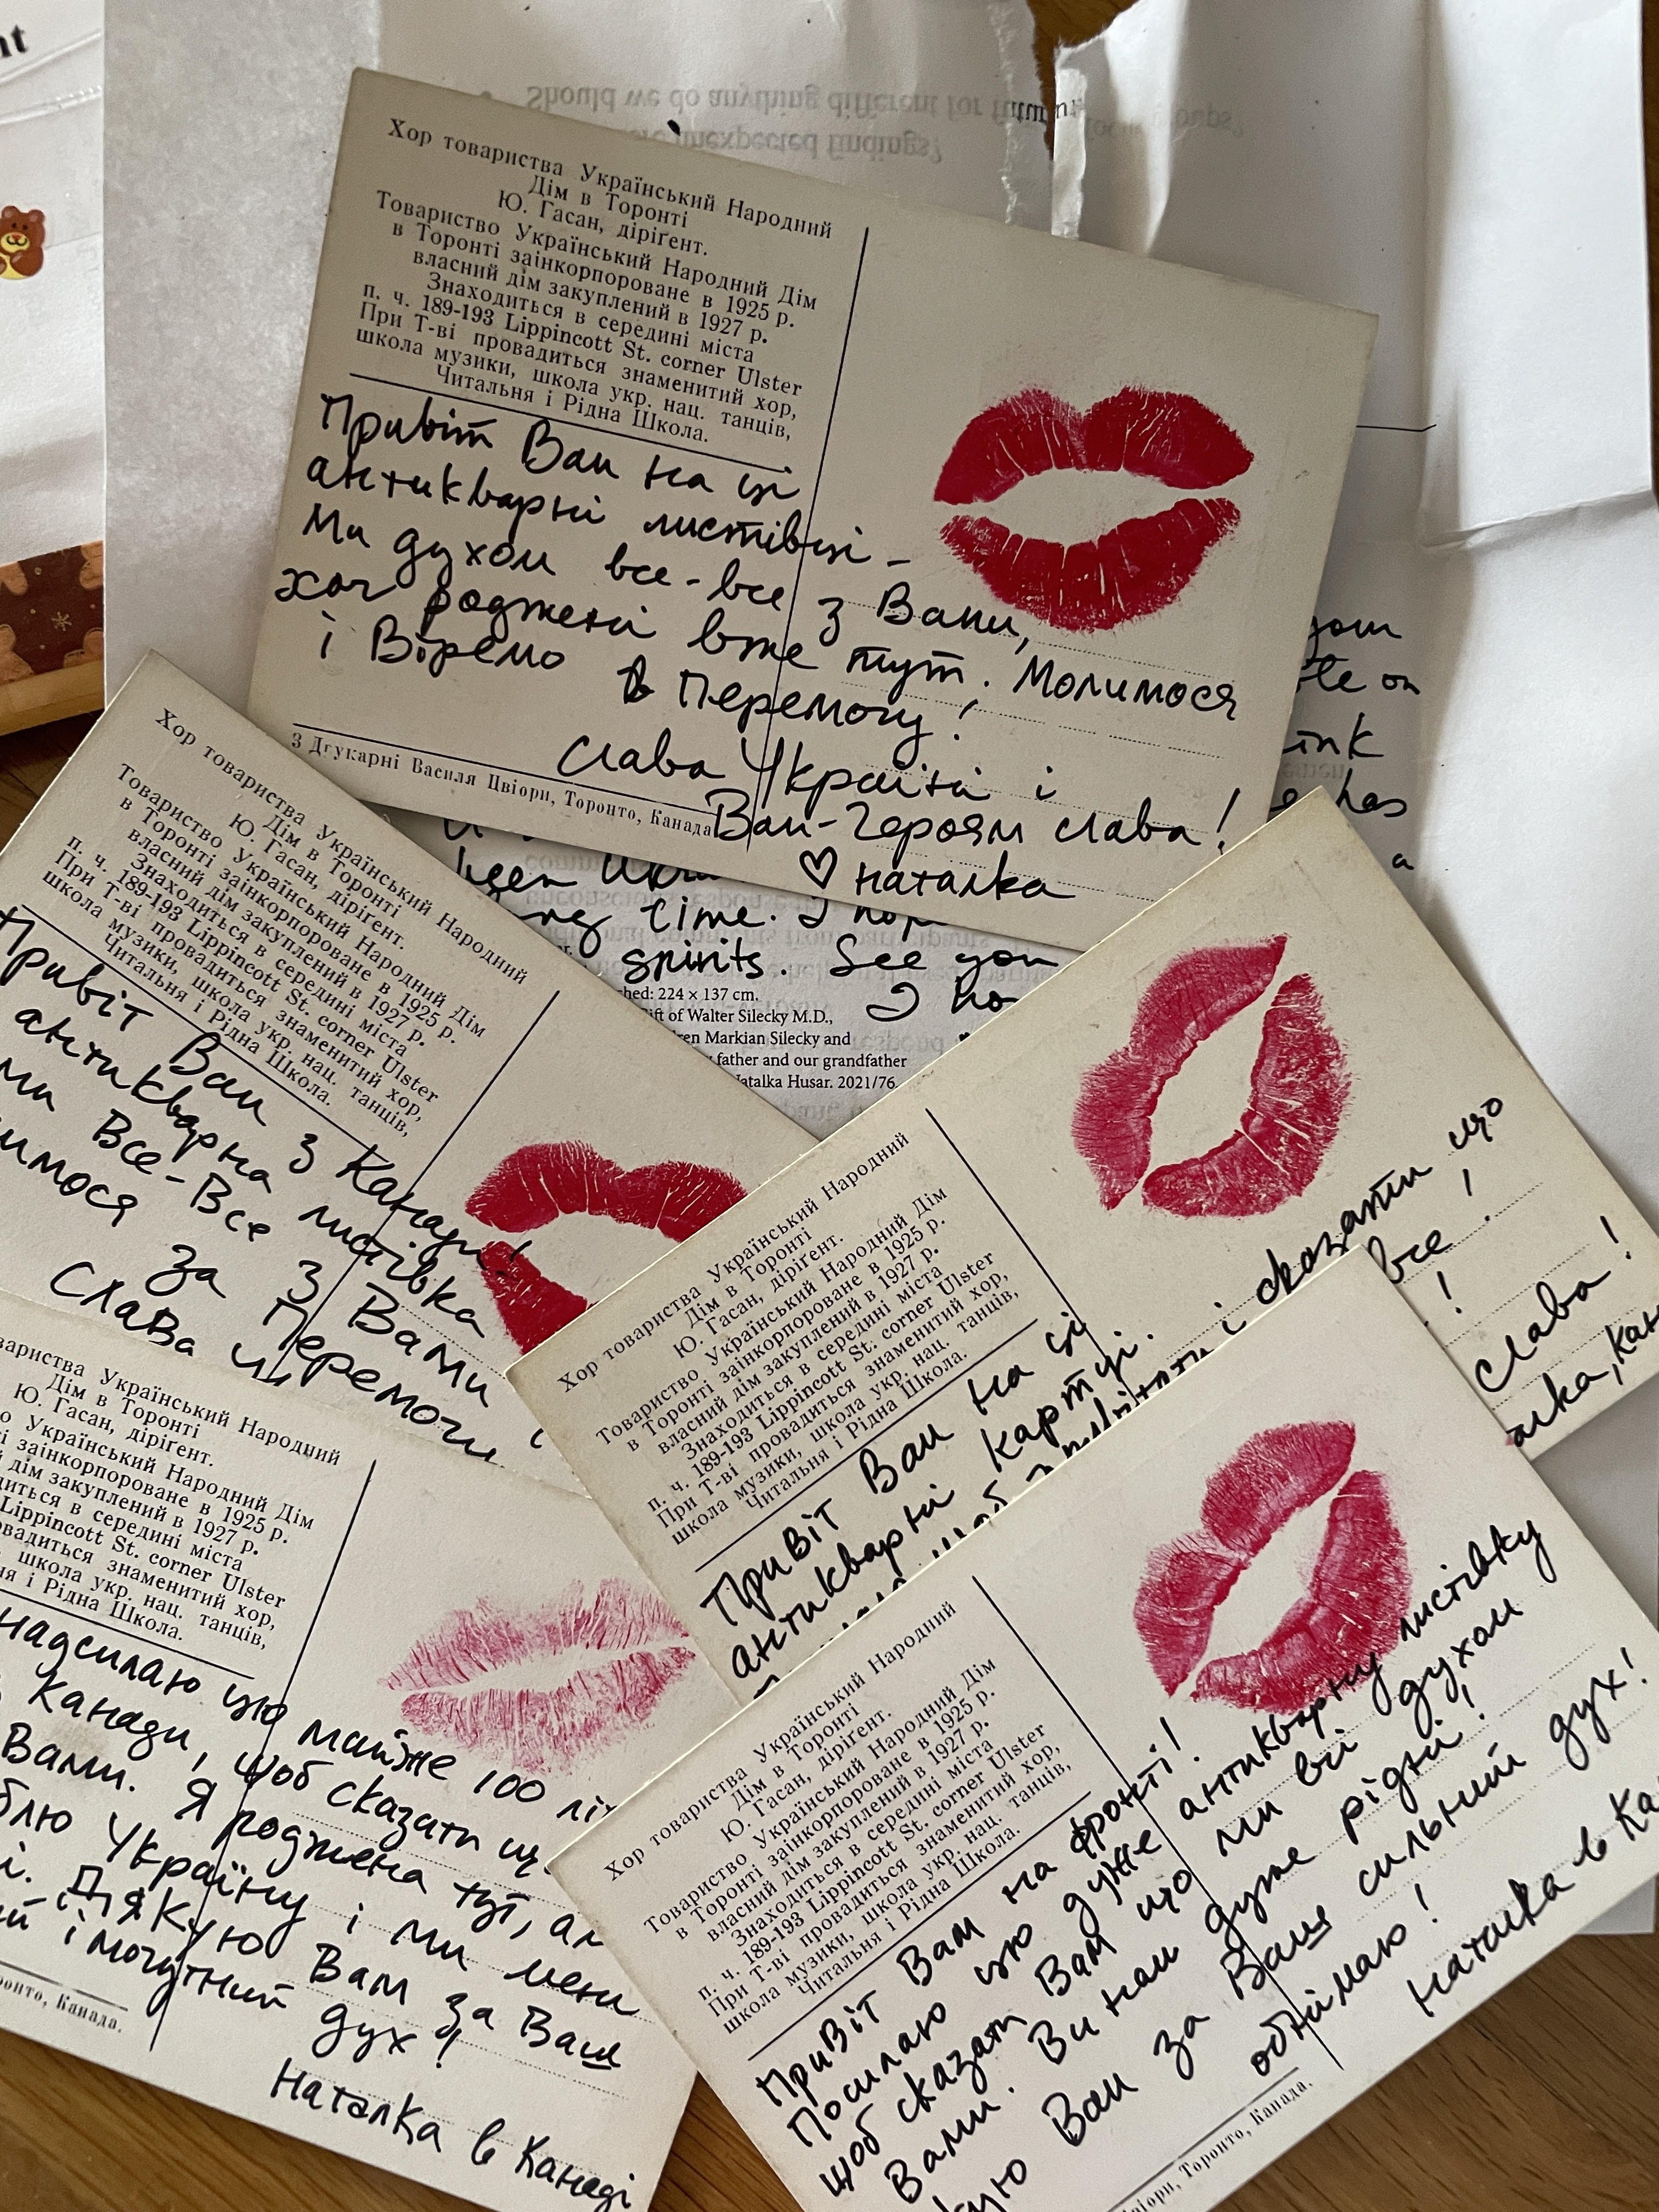 Should we do anything different for future focus groups?
unexpected findings?
Хор товариства Український Народний
Дім в Торонті
Ю. Гасан, діріґент.
Товариство Український Народний Дім
в Торонті заінкорпороване в 1925 р.
власний дім закуплений в 1927 р.
Знаходиться в середині міста
п. ч. 189-193 Lippincott St. corner Ulster
При Т-ві провадиться знаменитий хор,
школа музики, школа укр. нац. танців,
Читальня і Рідна Школа.
Привіт Вам на ці
антикварні листівці –
Ми духом все-все з Вами,
хоч роджені вже тут. Молимося
і Віремо в Перемогу!
Слава Україні і
Вам-Героям слава!
♡ Наталка
З Друкарні Василя Цвіори, Торонто, Канада
your
on
ink
has
a
time. I
spirits. See you
I
224 × 137 cm.
of Walter Silecky M.D.,
Markian Silecky and
father and our grandfather
Natalka Husar. 2021/76
Хор товариства Український Народний
Дім в Торонті
Ю. Гасан, діріґент.
Товариство Український Народний Дім
в Торонті заінкорпороване в 1925 р.
власний дім закуплений в 1927 р.
Знаходиться в середині міста
п. ч. 189-193 Lippincott St. corner Ulster
При Т-ві провадиться знаменитий хор,
школа музики, школа укр. нац. танців,
Читальня і Рідна Школа.
Привіт Вам з Канади!
антикварна листівка
ми Все-Все з Вами
за Перемогу
Слава
Хор товариства Український Народний
Дім в Торонті
Ю. Гасан, діріґент.
Товариство Український Народний Дім
в Торонті заінкорпороване в 1925 р.
власний дім закуплений в 1927 р.
Знаходиться в середині міста
п. ч. 189-193 Lippincott St. corner Ulster
При Т-ві провадиться знаменитий хор,
школа музики, школа укр. нац. танців,
Читальня і Рідна Школа.
Привіт Вам на ці
антикварні картці.
і сказати що
все
!
слава!
Український Народний
Дім в Торонті
Ю. Гасан, діріґент.
Український Народний Дім
заінкорпороване в 1925 р.
дім закуплений в 1927 р.
в середині міста
Lippincott St. corner Ulster
знаменитий хор,
школа укр. нац. танців,
і Рідна Школа.
надсилаю цю майже 100
Канади, щоб сказати
Вами. Я роджена тут,
Україну і ми
Дякую Вам за Ваш
і могутний дух!
Наталка в Канаді
Канада.
Хор товариства Український Народний
Дім в Торонті
Ю. Гасан, діріґент.
Товариство Український Народний Дім
в Торонті заінкорпороване в 1925 р.
власний дім закуплений в 1927 р.
Знаходиться в середині міста
п. ч. 189-193 Lippincott St. corner Ulster
При Т-ві провадиться знаменитий хор,
школа музики, школа укр. нац. танців,
Читальня і Рідна Школа.
Привіт Вам на фронті!
Посилаю цю дуже антикварну листівку
щоб сказати Вам що ми всі духом
Вами. Ви нам дуже рідні!
Вам за Ваш сильний дух!
обнімаю!
Наталка в
Торонто, Канада.